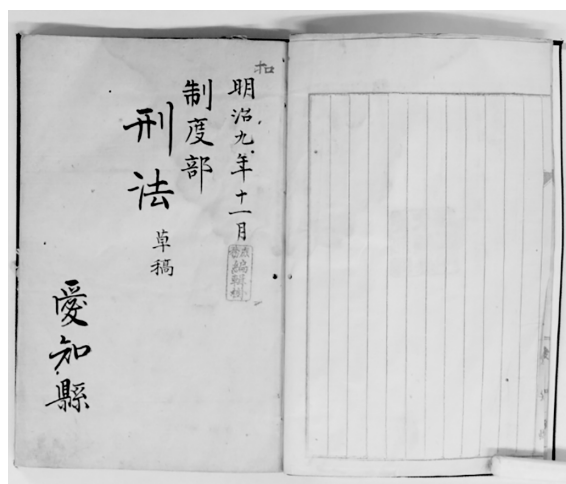 明治九年十一月
制度部
刑法
草稿
愛知縣